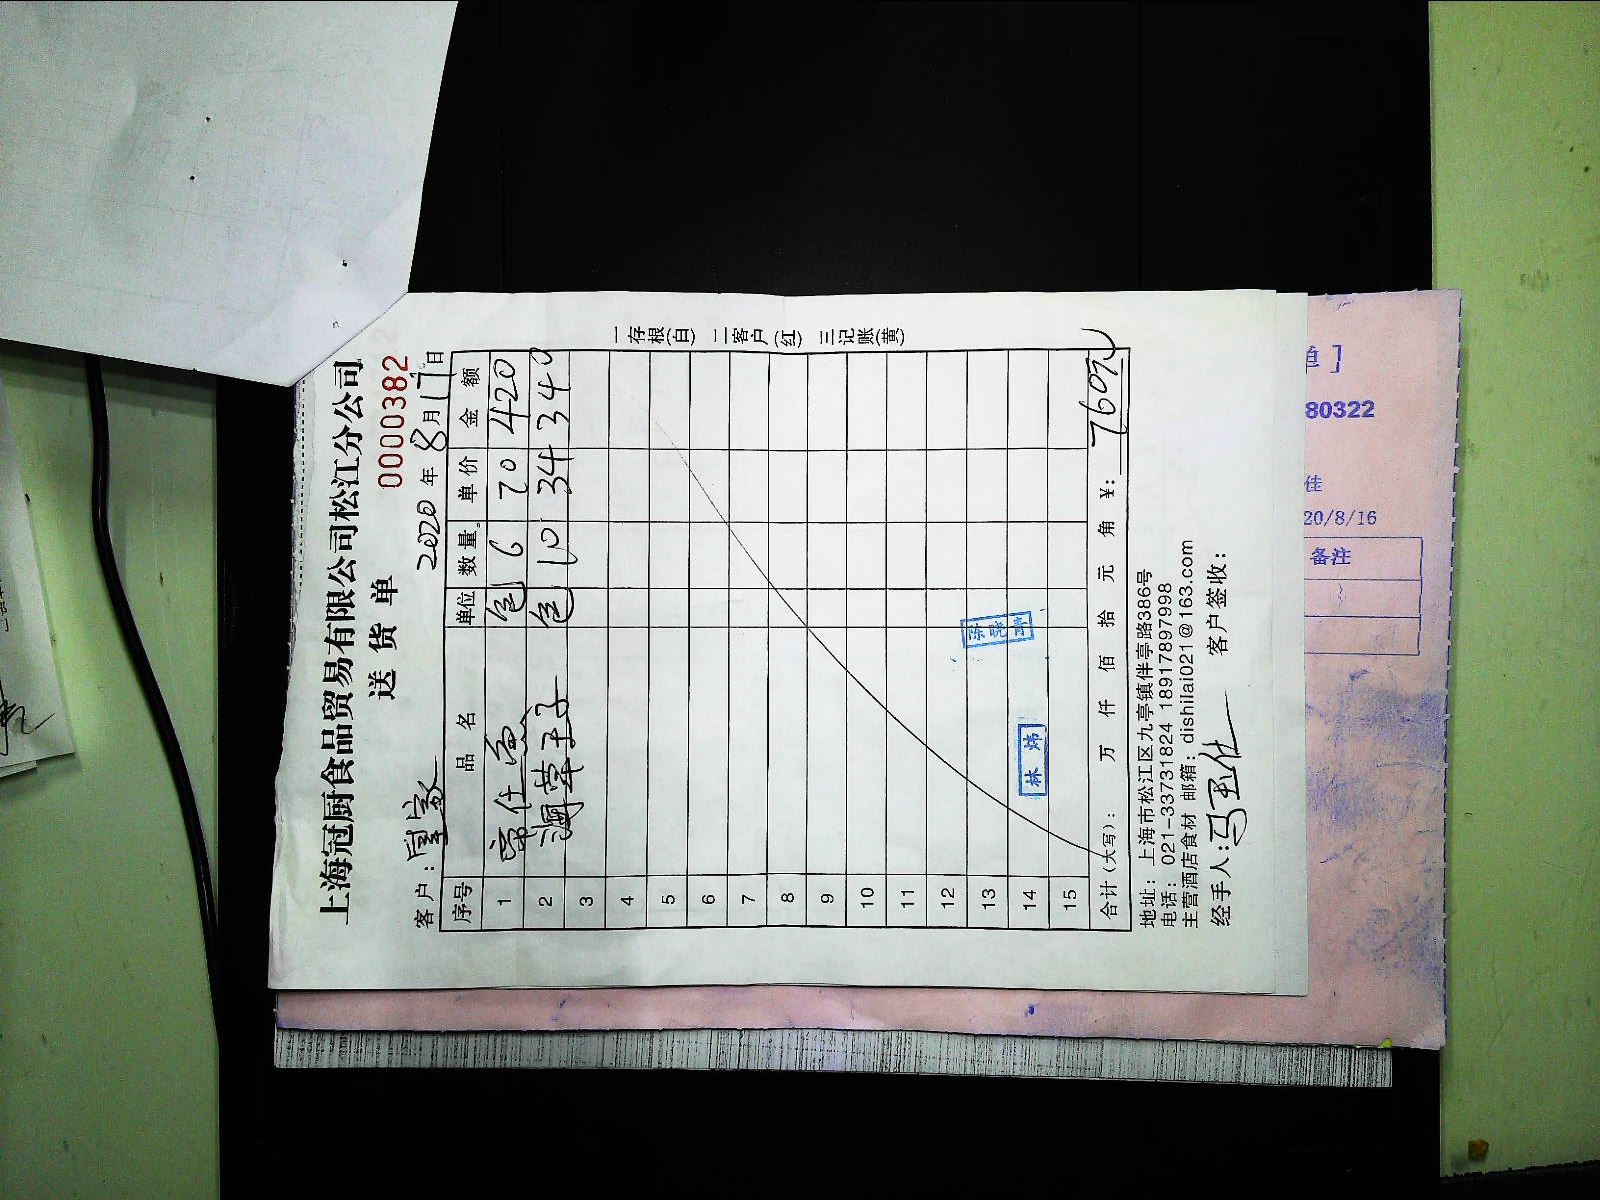 上海冠厨食品贸易有限公司松江分公司
送货单
0000382
客户:
2020年8月17日
序号 品名 单位 数量 单价 金额
1 包 6 70 420
2 包 10 34 340
3
4
5
6
7
8
9
10
11
12
13
14
15
陈晓亭
林炜
合计(大写): 万 仟 佰 拾 元 角 ¥: 760元
地址:上海市松江区九亭镇伴亭路386号
电话:021-33731824 18917897998
主营酒店食材 邮箱:dishilai021@163.com
经手人: 客户签收:
一存根(白) 二客户(红) 三记账(黄)
单]
80322
佳
20/8/16
备注